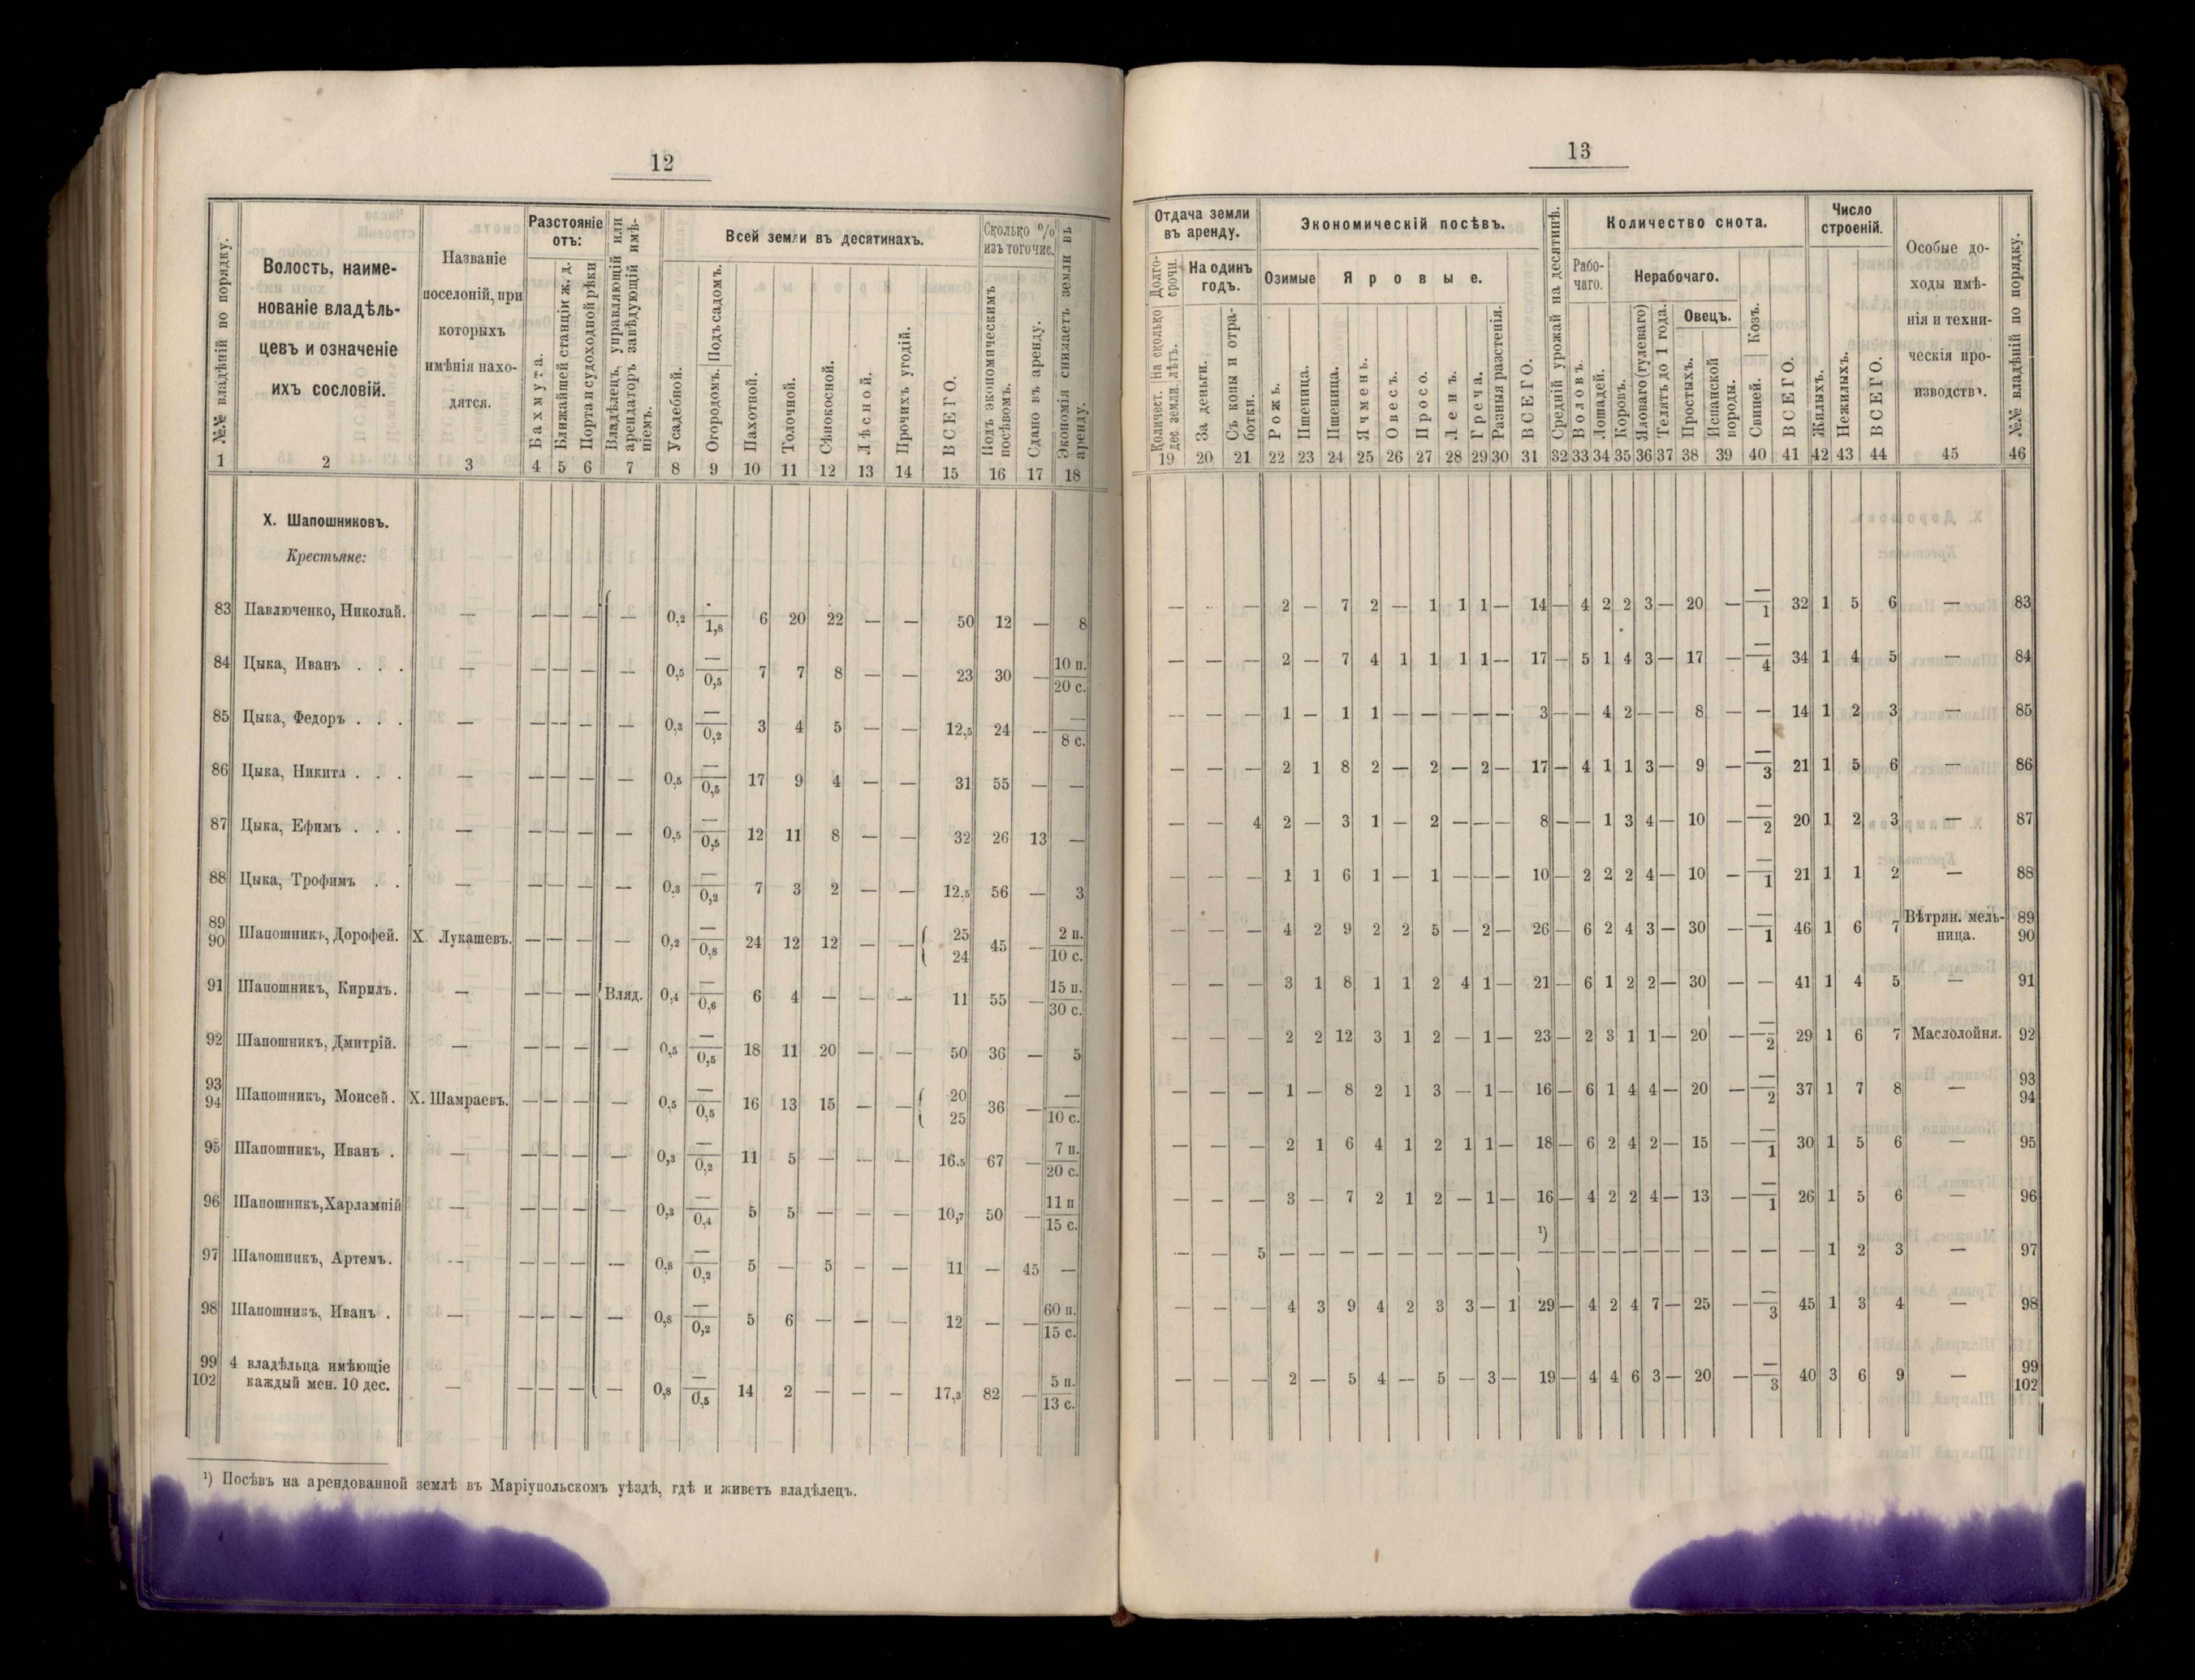 12
№№ владѣній по порядку.
Волость, наиме-
нованіе владѣль-
цевъ и означеніе
ихъ сословій.
Названіе
поселоній, при
которыхъ
имѣнія нахо-
дятся.
Разстояніе
отъ:
Бахмута.
Ближайшей станціи ж. д.
Порта и судоходной рѣки
Владѣлецъ, управляющій или
арендаторъ завѣдующій имѣ-
ніемъ.
Всей земли въ десятинахъ.
Усадебной.
Огородомъ. Подъ садомъ.
Пахотной.
Толочной.
Сѣнокосной.
Лѣсной.
Прочихъ угодій.
ВСЕГО.
Сколько %
изъ того чис.
Подъ экономическимъ
посѣвомъ.
Сдано въ аренду.
Экономія снимаетъ земли въ
аренду.
1 2 3 4 5 6 7 8 9 10 11 12 13 14 15 16 17 18
Х. Шапошниковъ.
Крестьяне:
83 Павлюченко, Николай. — — — — — 0,2 1,8 6 20 22 — — 50 12 — 8
84 Цыка, Иванъ . . . — — — — — 0,5 —/0,5 7 7 8 — — 23 30 — 10 п./20 с.
85 Цыка, Федоръ . . . — — — — — 0,3 —/0,2 3 4 5 — — 12,5 24 — —/8 с.
86 Цыка, Никита . . . — — — — — 0,5 —/0,5 17 9 4 — — 31 55 — —
87 Цыка, Ефимъ . . . — — — — — 0,5 —/0,5 12 11 8 — — 32 26 13 —
88 Цыка, Трофимъ . . — — — — — 0,3 —/0,2 7 3 2 — — 12,5 56 — 3
89 90 Шапошникъ, Дорофей. Х. Лукашевъ. — — — — 0,2 —/0,8 24 12 12 — — { 25 24 45 — 2 п./10 с.
91 Шапошникъ, Кирилъ. — — — — Вляд. 0,4 —/0,6 6 4 — — — 11 55 — 15 п./30 с.
92 Шапошникъ, Дмитрій. — — — — — 0,5 —/0,5 18 11 20 — — 50 36 — 5
93 94 Шапошникъ, Моисей. Х. Шамраевъ. — — — — 0,5 —/0,5 16 13 15 — — { 20 25 36 — —/10 с.
95 Шапошникъ, Иванъ . — — — — — 0,3 —/0,2 11 5 — — — 16.5 67 — 7 п./20 с.
96 Шапошникъ,Харлампій — — — — — 0,3 —/0,4 5 5 — — — 10,7 50 — 11 п/15 с.
97 Шапошникъ, Артемъ. — — — — — 0,8 —/0,2 5 — 5 — — 11 — 45 —
98 Шапошникъ, Иванъ . — — — — — 0,8 —/0,2 5 6 — — — 12 — — 60 п./15 с.
99 102 4 владѣльца имѣющіе
каждый мен. 10 дес. — — — — — 0,8 —/0,5 14 2 — — — 17,3 82 — 5 п./13 с.
¹) Посѣвъ на арендованной землѣ въ Маріупольскомъ уѣздѣ, гдѣ и живетъ владѣлецъ.
13
Отдача земли
въ аренду.
Долго-
срочн.
Количест. На сколько
дес. земли. лѣтъ.
На одинъ
годъ.
За деньги.
Съ копы и отра-
ботки.
Экономическій посѣвъ.
Озимые
Яровые.
Рожь.
Пшеница.
Пшеница.
Ячмень.
Овесъ.
Просо.
Ленъ.
Греча.
Разныя растенія.
ВСЕГО.
Средній урожай на десятинѣ.
Количество снота.
Рабо-
чаго.
Нерабочаго.
Воловъ.
Лошадей.
Коровъ.
Яловаго (гулеваго)
Телятъ до 1 года.
Овецъ.
Простыхъ.
Испанской
породы.
Свиней. Козъ.
ВСЕГО.
Число
строеній.
Жилыхъ.
Нежилыхъ.
ВСЕГО.
Особые до-
ходы имѣ-
нія и техни-
ческія про-
изводства.
№№ владѣній по порядку.
19 20 21 22 23 24 25 26 27 28 29 30 31 32 33 34 35 36 37 38 39 40 41 42 43 44 45 46
— - — 2 — 7 2 — 1 1 1 — 14 — 4 2 2 3 — 20 — —/1 32 1 5 6 — 83
— — — 2 — 7 4 1 1 1 1 — 17 — 5 1 4 3 — 17 — —/4 34 1 4 5 — 84
— — — 1 — 1 1 — — — — — 3 — — 4 2 — — 8 — — 14 1 2 3 — 85
— — — 2 1 8 2 — 2 — 2 — 17 — 4 1 1 3 — 9 — —/3 21 1 5 6 — 86
— — 4 2 — 3 1 — 2 — — — 8 — — 1 3 4 — 10 — —/2 20 1 2 3 — 87
— — — 1 1 6 1 — 1 — — — 10 — 2 2 2 4 — 10 — —/1 21 1 1 2 — 88
— — — 4 2 9 2 2 5 — 2 — 26 — 6 2 4 3 — 30 — —/1 46 1 6 7 Вѣтрян. мель-
ница. 89 90
— — — 3 1 8 1 1 2 4 1 — 21 — 6 1 2 2 — 30 — — 41 1 4 5 — 91
— — — 2 2 12 3 1 2 — 1 — 23 — 2 3 1 1 — 20 — —/2 29 1 6 7 Маслолойня. 92
— — — 1 — 8 2 1 3 — 1 — 16 — 6 1 4 4 — 20 — —/2 37 1 7 8 — 93 94
— — — 2 1 6 4 1 2 1 1 — 18 — 6 2 4 2 — 15 — —/1 30 1 5 6 — 95
— — — 3 — 7 2 1 2 — 1 — 16 — 4 2 2 4 — 13 — —/1 26 1 5 6 — 96
— — 5 — — — — — — — — — ¹) — — — — — — — — — — — 1 2 3 — 97
— — — 4 3 9 4 2 3 3 — 1 29 — 4 2 4 7 — 25 — —/3 45 1 3 4 — 98
— — — 2 — 5 4 — 5 — 3 — 19 — 4 4 6 3 — 20 — —/3 40 3 6 9 — 99 102